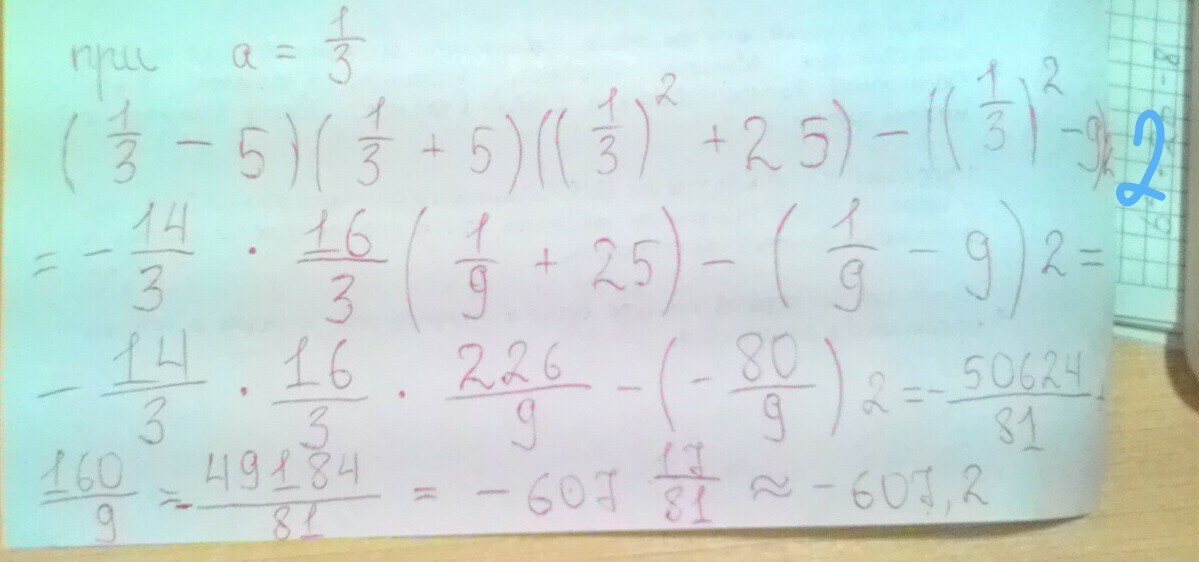 при a = 1/3
(1/3 - 5)(1/3 + 5)((1/3)² + 25) - ((1/3)² - 9)2
= - 14/3 · 16/3 (1/9 + 25) - (1/9 - 9) 2 =
- 14/3 · 16/3 · 226/9 - (- 80/9) 2 = - 50624/81
160/9 = - 49184/81 = - 607 17/81 ≈ - 607,2
2